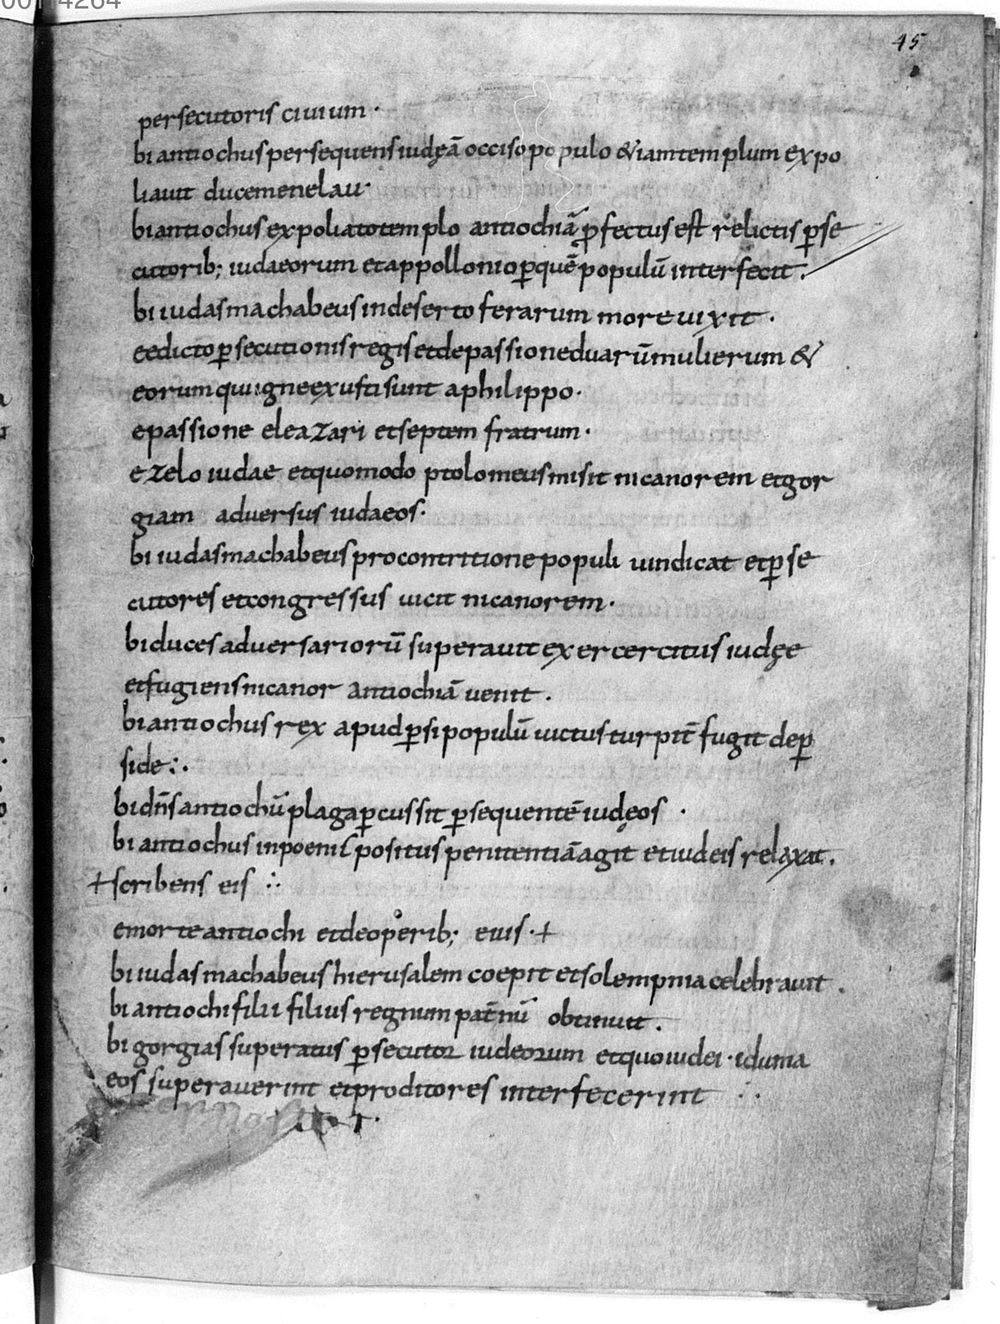 45
persecutoris civium ·
bi antiochus persequens iudęā occiso populo & iam templum expo
liavit duce menelau ·
bi antiochus expoliato templo antiochiā pfectus est relictis pse
cutorib; iudaeorum et appollonio p quē populū interfecit .
bi iudas machabeus in deserto ferarum more vixit ·
e edicto psecutionis regis et de passione duarū mulierum &
eorum qui igne exusti sunt a philippo ·
e passione eleazari et septem fratrum ·
e zelo iudae et quomodo ptolomeus misit nicanorem et gor
giam adversus iudaeos ·
bi iudas machabeus pro contritione populi vindicat et pse
cutores et congressus vicit nicanorem ·
bi duces adversariorū superavit exercercitus iudęe
et fugiens nicanor antiochiā venit .
bi antiochus rex apud psipopulū victus turpit fugit de p
side : .
bi dns antiochū plaga pcussit psequentē iudęos ·
bi antiochus in poenis positus penitentiā agit et iudeis relaxat .
+ scribens eis :·
e morte antiochi et de operib; eius · +
bi iudas machabeus hierusalem coepit et solempnia celebravit .
bi antiochi filii filius regnum patnū obtinuit .
bi gorgias superatus psecutor iudeorum et quo iudei · iduma
eos superaverint et proditores interfecerint